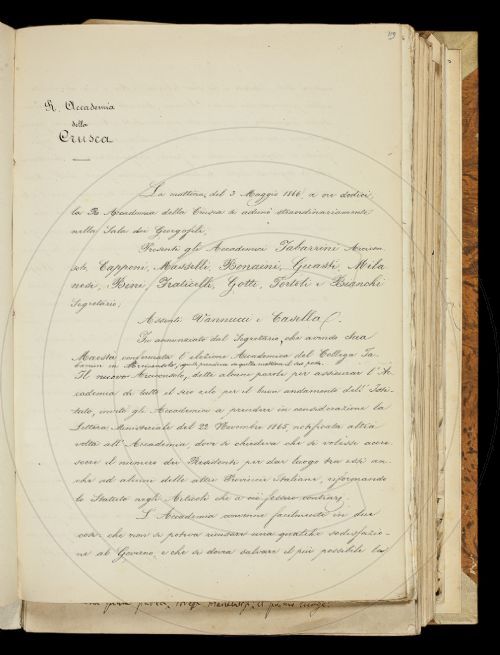 119
R. Accademia
della
Crusca
La mattina del 3 Maggio 1866, a ore dodici,
la R. Accademia della Crusca si adunò straordinariamente
nella Sala dei Georgofili.
Presenti gli Accademici Tabarrini Arcicon-
solo, Capponi, Masselli, Bonaini, Guasti, Mila
nesi, Bini, Fraticelli, Gotti, Tortoli e Bianchi
Segretario;
Assenti Vannucci e Casella.
Fu annunziato dal Segretario, che avendo Sua
Maestà confermata l'elezione Accademica del Collega Ta-
barrini in Arciconsolo, questi prendeva in quella mattina il suo posto.
Il nuovo Arciconsolo, dette alcune parole per assicurar l'Ac-
cademia di tutto il suo zelo per il buon andamento dell'Isti-
tuto, invitò gli Accademici a prendere in considerazione la
Lettera Ministeriale del 22 Novembre 1865, notificata altra
volta all'Accademia, dove si chiedeva che si volesse accre-
scere il numero dei Residenti per dar luogo tra essi an-
che ad alcuni delle altre Provincie Italiane, riformando
lo Statuto negli Articoli che a ciò fossero contrarj.
L'Accademia convenne facilmente in due
cose: che non si poteva ricusare una qualche sodisfazio-
ne al Governo, e che si dovea salvare il più possibile la